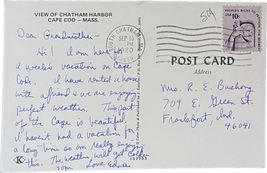 VIEW OF CHATHAM HARBOR
CAPE COD — MASS.
Dear Grandmother –
Hi! I am here for
a week's vacation on Cape
Cod. I have rented a house
with a friend & we are enjoying
perfect weather. This part
of the Cape is beautiful.
I haven't had a vacation for
a long time so am really enjoying
this. The weather will get cold
soon. Love Edna
SOUTH CHATHAM, MA
SEP 10
PM
POST CARD
Address
Mrs. R. E. Bushong
709 E. Green St.
Frankfort, Ind.
46041
USA 10c
K